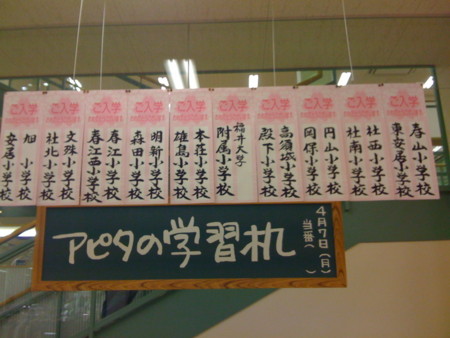 ご入学
春山小学校
東安居小学校
ご入学
社西小学校
社南小学校
ご入学
円山小学校
岡保小学校
ご入学
高須城小学校
殿下小学校
ご入学
福井大学
附属小学校
ご入学
本荘小学校
雄島小学校
ご入学
明新小学校
森田小学校
ご入学
春江小学校
春江西小学校
ご入学
文殊小学校
社北小学校
ご入学
旭小学校
安居小学校
4月7日(月)
当番( )
アピタの学習机